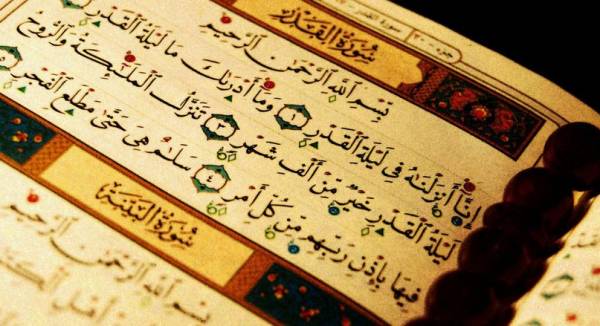 جزء ٣٠ سورة القدر
سُورَةُ الْقَدْرِ
بِسْمِ اللَّهِ الرَّحْمَٰنِ الرَّحِيمِ
إِنَّآ أَنزَلْنَٰهُ فِى لَيْلَةِ ٱلْقَدْرِ ١ وَمَآ أَدْرَىٰكَ مَا لَيْلَةُ ٱلْقَدْرِ
لَيْلَةُ ٱلْقَدْرِ خَيْرٌ مِّنْ أَلْفِ شَهْرٍ ٣ تَنَزَّلُ ٱلْمَلَٰٓئِكَةُ وَٱلرُّوحُ
فِيهَا بِإِذْنِ رَبِّهِم مِّن كُلِّ أَمْرٍ ٤ سَلَٰمٌ هِىَ حَتَّىٰ مَطْلَعِ ٱلْفَجْرِ
سُورَةُ الْبَيِّنَةِ
بِسْمِ اللَّهِ الرَّحْمَٰنِ الرَّحِيمِ
أَهْلِ